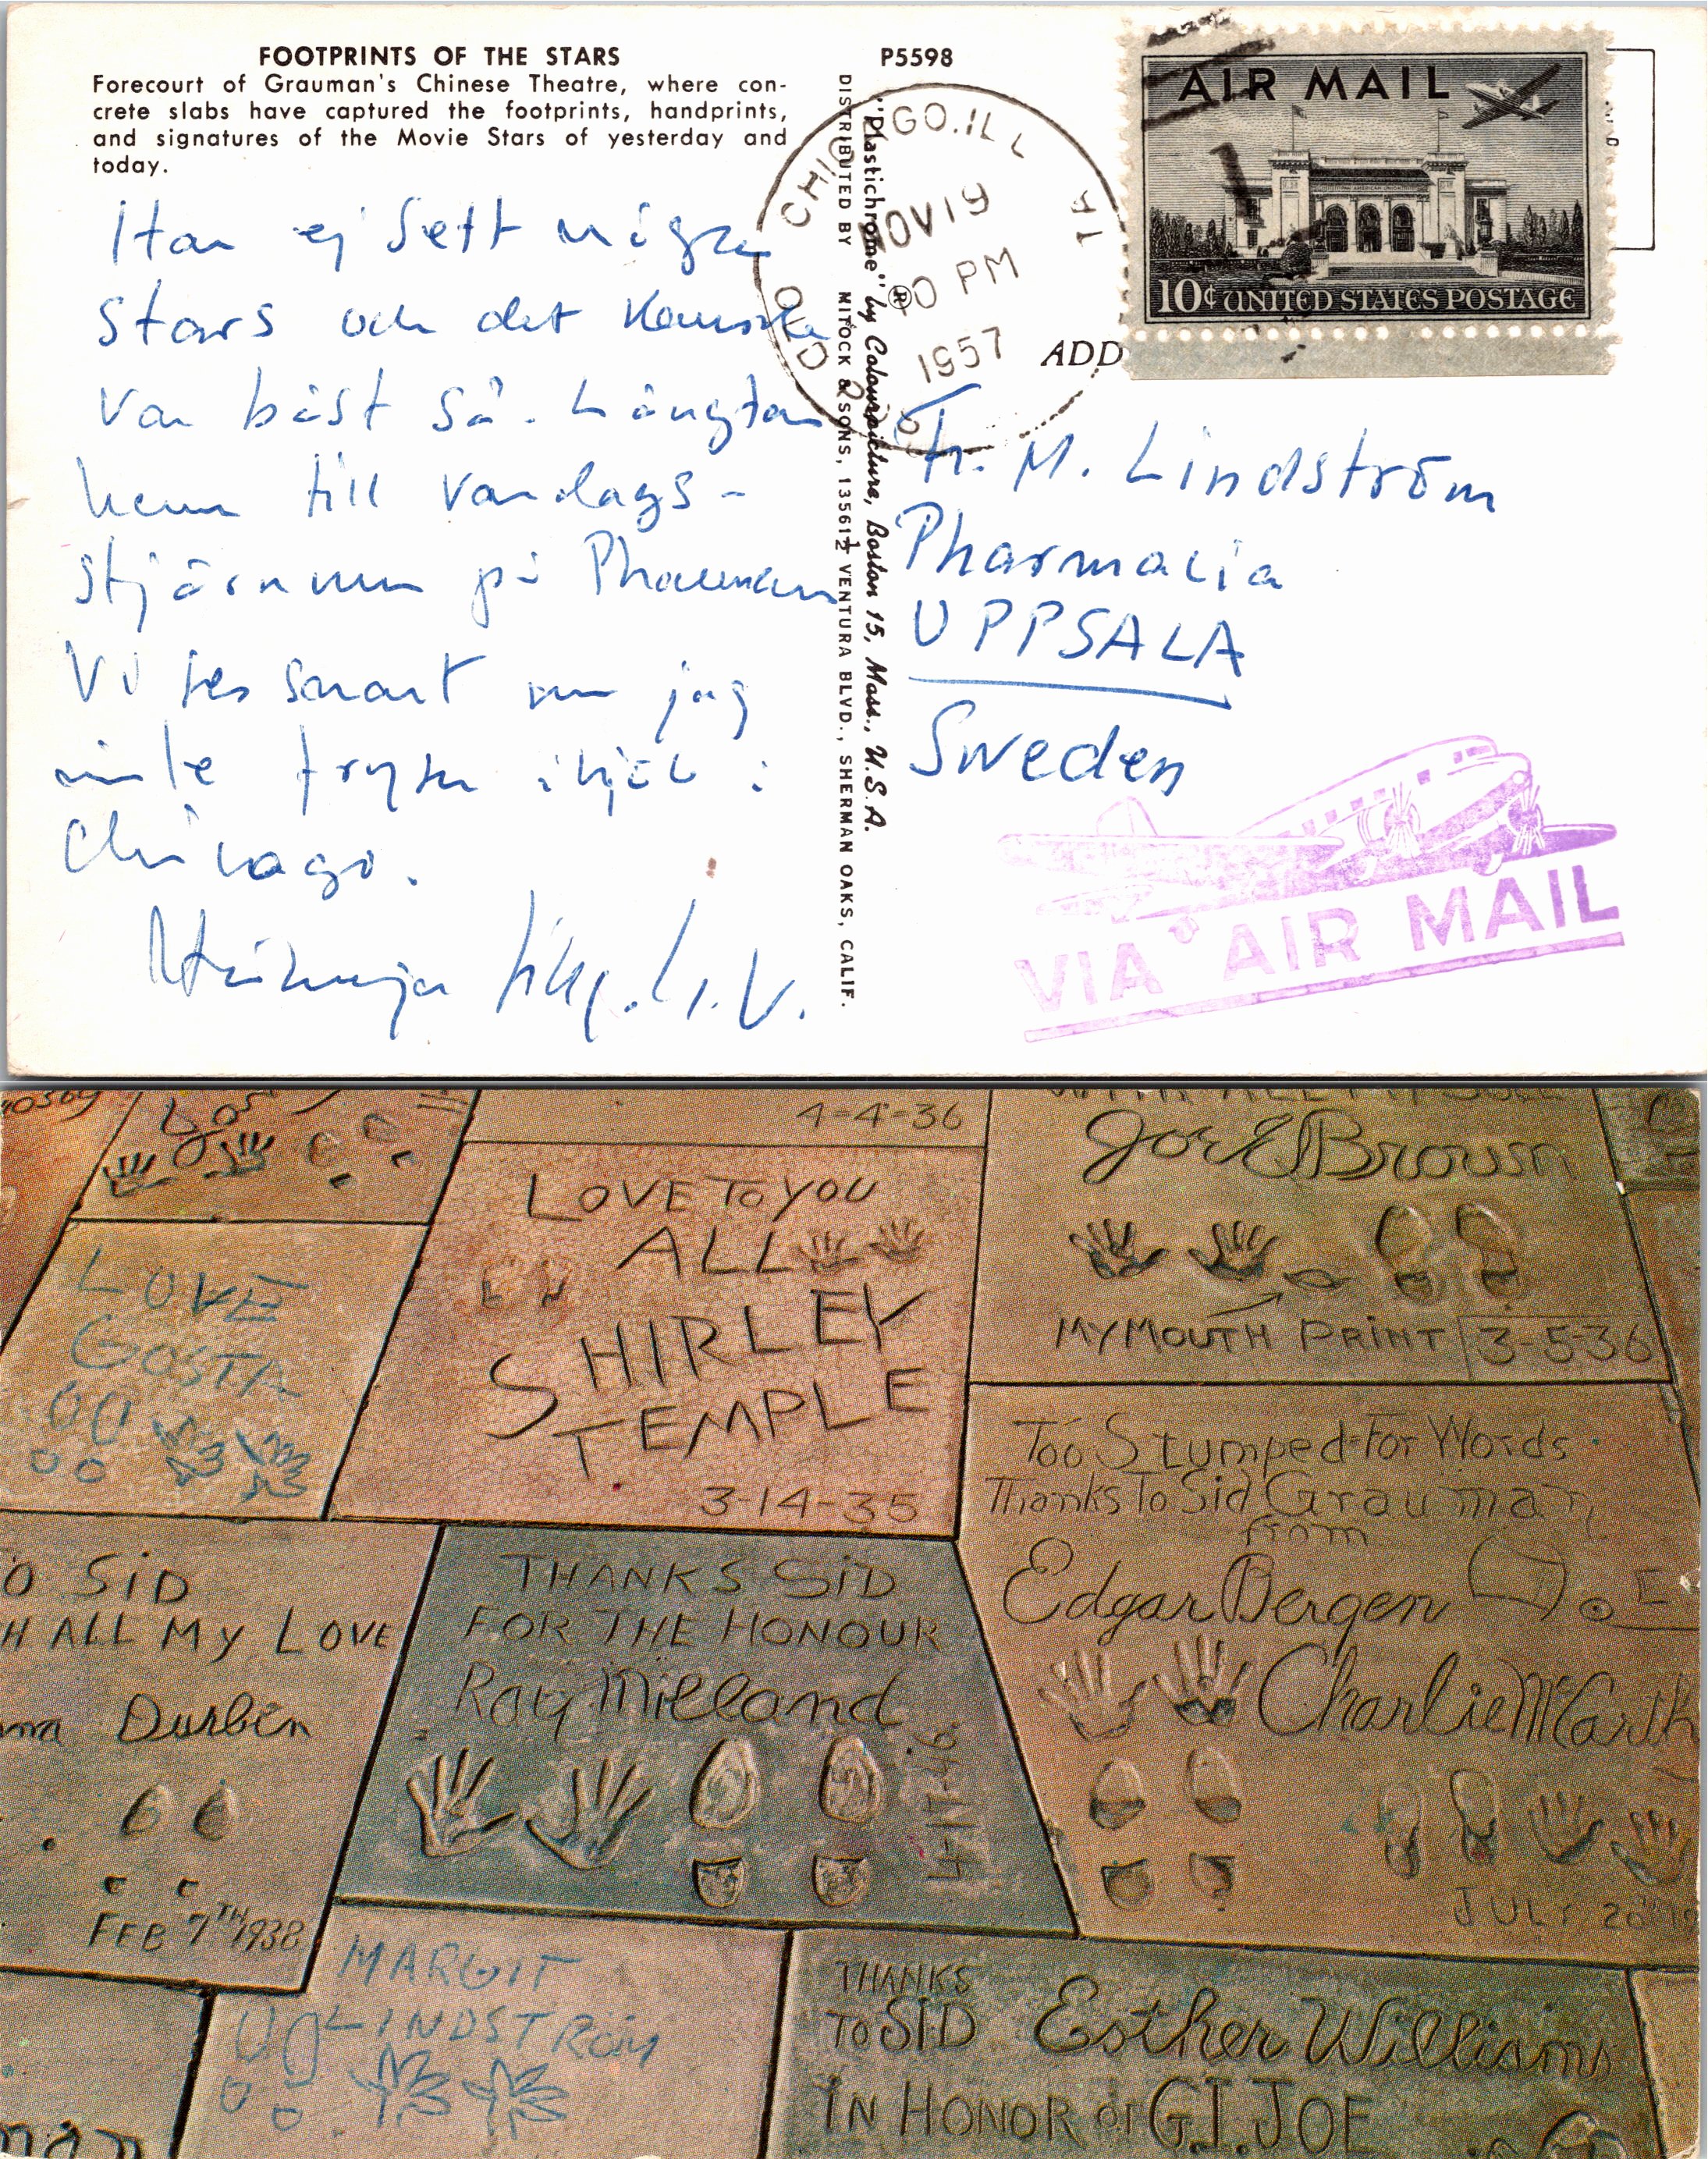 FOOTPRINTS OF THE STARS
Forecourt of Grauman's Chinese Theatre, where con-
crete slabs have captured the footprints, handprints,
and signatures of the Movie Stars of yesterday and
today.
Har ej sett några
Stars och det kanske
var bäst så. Längtar
hem till vardags-
stjärnorna på Pharmacia
Vi ses snart om jag
inte fryser ihjäl i
Chicago.
P5598
DISTRIBUTED BY MITOCK & SONS, 13561½ VENTURA BLVD., SHERMAN OAKS, CALIF.
"Plastichrome" ® by Colourpicture, Boston 15, Mass., U.S.A.
CHICAGO.ILL
NOV 19
PM
1957
AIR MAIL
10¢ UNITED STATES POSTAGE
ADD
Fr. M. Lindström
Pharmacia
UPPSALA
Sweden
VIA AIR MAIL
4-4-36
LOVE TO YOU
ALL
SHIRLEY
TEMPLE
3-14-35
Joe E Brown
MY MOUTH PRINT
3-5-36
LOVE
GOSTA
Too Stumped For Words
Thanks To Sid Grauman
from
Edgar Bergen
Charlie McCarth
JULY 20
O SID
H ALL MY LOVE
na Durbin
FEB 7TH 1938
THANKS SID
FOR THE HONOUR
Ray Milland
4-17-46
MARGIT
LINDSTRÖM
THANKS
TO SID Esther Williams
IN HONOR OF G.I. JOE
man